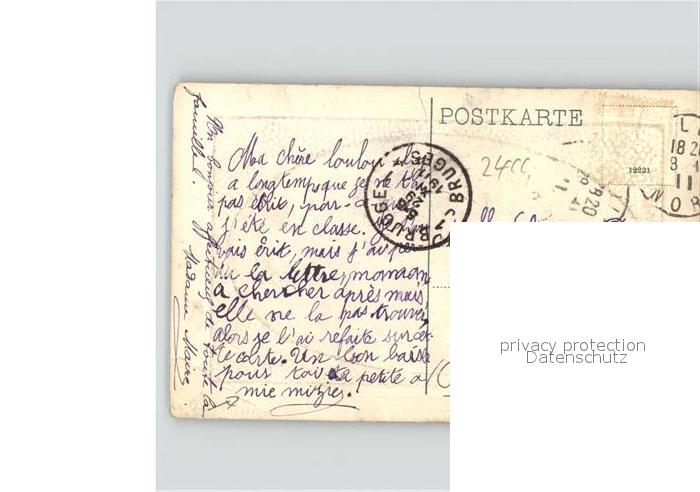 POSTKARTE
Ma chère loulou
a longtemps que je ne t'ai
pas écrit, par
j'été en classe.
mais j'ai
la lettre, maman
a chercher après mais
elle ne la pas trouver,
alors je l'ai refaite sur ce
te carte. Un bon baiser
pour toi ta petite a
mie mitzies.
Un bonjour affectueux de toute la
famille
Madame Maire
BRUGGE
BRUGES
1911
2400
12221
18 20
11
privacy protection
Datenschutz